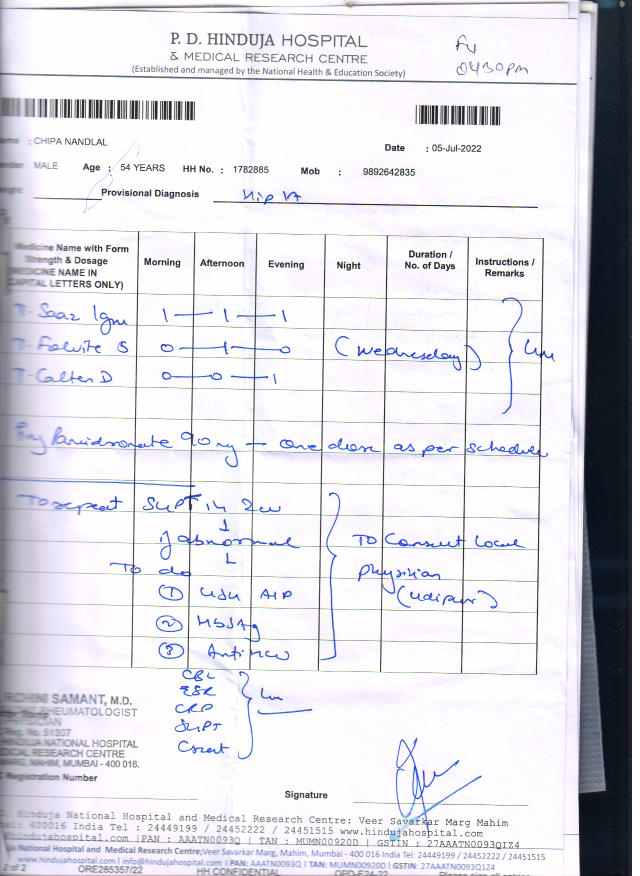 P. D. HINDUJA HOSPITAL
& MEDICAL RESEARCH CENTRE
(Established and managed by the National Health & Education Society)
04:30pm
: CHIPA NANDLAL
Date : 05-Jul-2022
MALE Age : 54 YEARS HH No. : 1782885 Mob : 9892642835
Provisional Diagnosis
Medicine Name with Form Strength & Dosage (MEDICINE NAME IN CAPITAL LETTERS ONLY) Morning Afternoon Evening Night Duration / No. of Days Instructions / Remarks
T-Saaz 1gm 1 — 1 — 1
T-Folvite 5 0 — 1 — 0 (Wednesday)
T-Calten D 0 — 0 — 1
Pamidronate 90 mg — one dose as per schedule
To repeat SGPT in 2w
↓
if abnormal To Consult local
↓
To do physician
① USG (Udipur)
② HBSAg
③ Anti HCV
CBC
ESR
CRP
SGPT
Creat
ROHINI SAMANT, M.D.
RHEUMATOLOGIST
Reg. No. 51307
HINDUJA NATIONAL HOSPITAL
MEDICAL RESEARCH CENTRE
MARG, MAHIM, MUMBAI - 400 016.
Registration Number
Signature
P.D. Hinduja National Hospital and Medical Research Centre: Veer Savarkar Marg Mahim
400016 India Tel : 24449199 / 24452222 / 24451515 www.hindujahospital.com
@hindujahospital.com |PAN : AAATN0093Q | TAN : MUMN00920D | GSTIN : 27AAATN0093Q1Z4
National Hospital and Medical Research Centre;Veer Savarkar Marg, Mahim, Mumbai - 400 016 India Tel: 24449199 / 24452222 / 24451515
www.hindujahospital.com | info@hindujahospital.com | PAN: AAATN0093Q | TAN: MUMN00920D | GSTIN: 27AAATN0093Q1Z4
2 of 2 ORE285357/22 HH CONFIDENTIAL